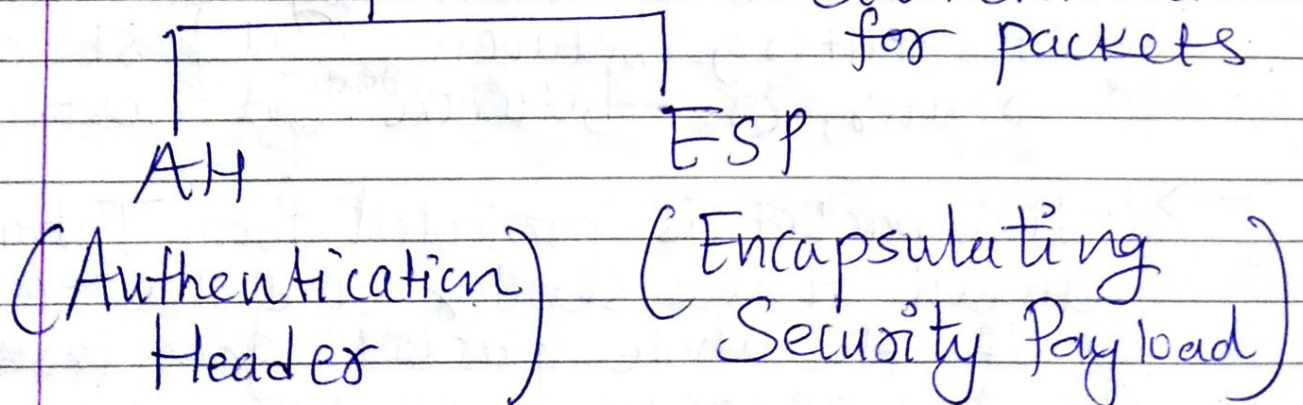 for packets
AH
ESP
(Authentication Header)
(Encapsulating Security Payload)